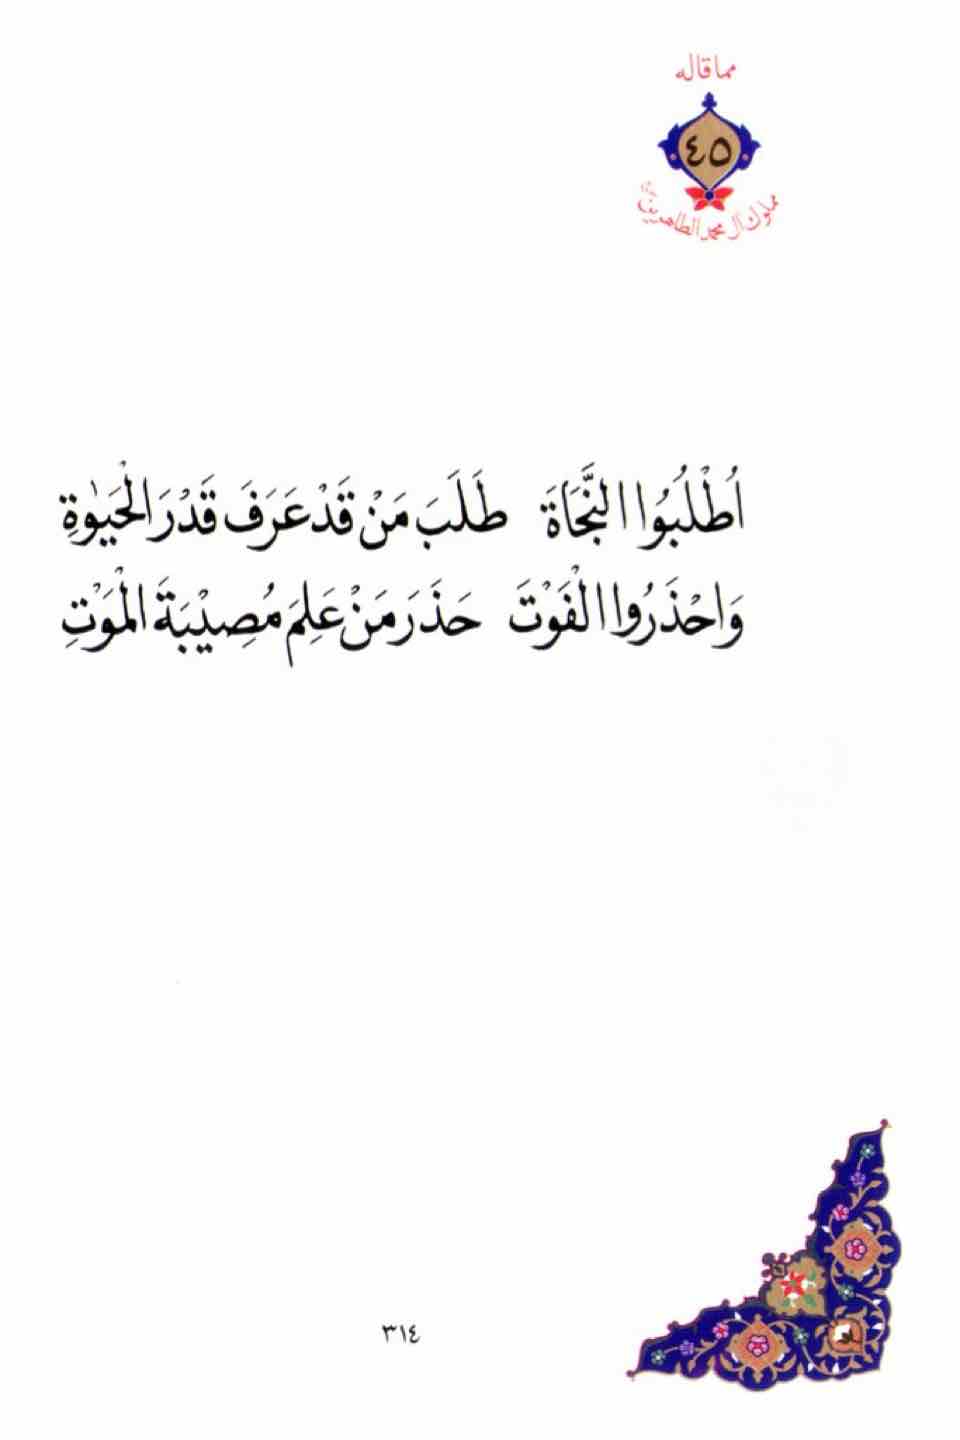 مما قاله
٤٥
مملوك آل محمد الطاهرين
اُطْلُبُوا النَّجَاةَ طَلَبَ مَنْ قَدْ عَرَفَ قَدْرَ الْحَيٰوةِ
وَاحْذَرُوا الْفَوْتَ حَذَرَ مَنْ عَلِمَ مُصِيْبَةَ الْمَوْتِ
٣١٤